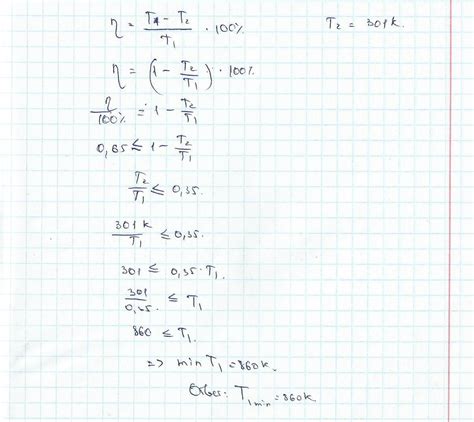 η = (T₁ - T₂)/T₁ · 100%    T₂ = 301K.
η = (1 - T₂/T₁) · 100%
η/100% = 1 - T₂/T₁
0,65 ≤ 1 - T₂/T₁
T₂/T₁ ≤ 0,35.
301K/T₁ ≤ 0,35.
301 ≤ 0,35 · T₁.
301/0,35. ≤ T₁
860 ≤ T₁.
=> min T₁ = 860K.
Ответ: T₁ min = 860K.